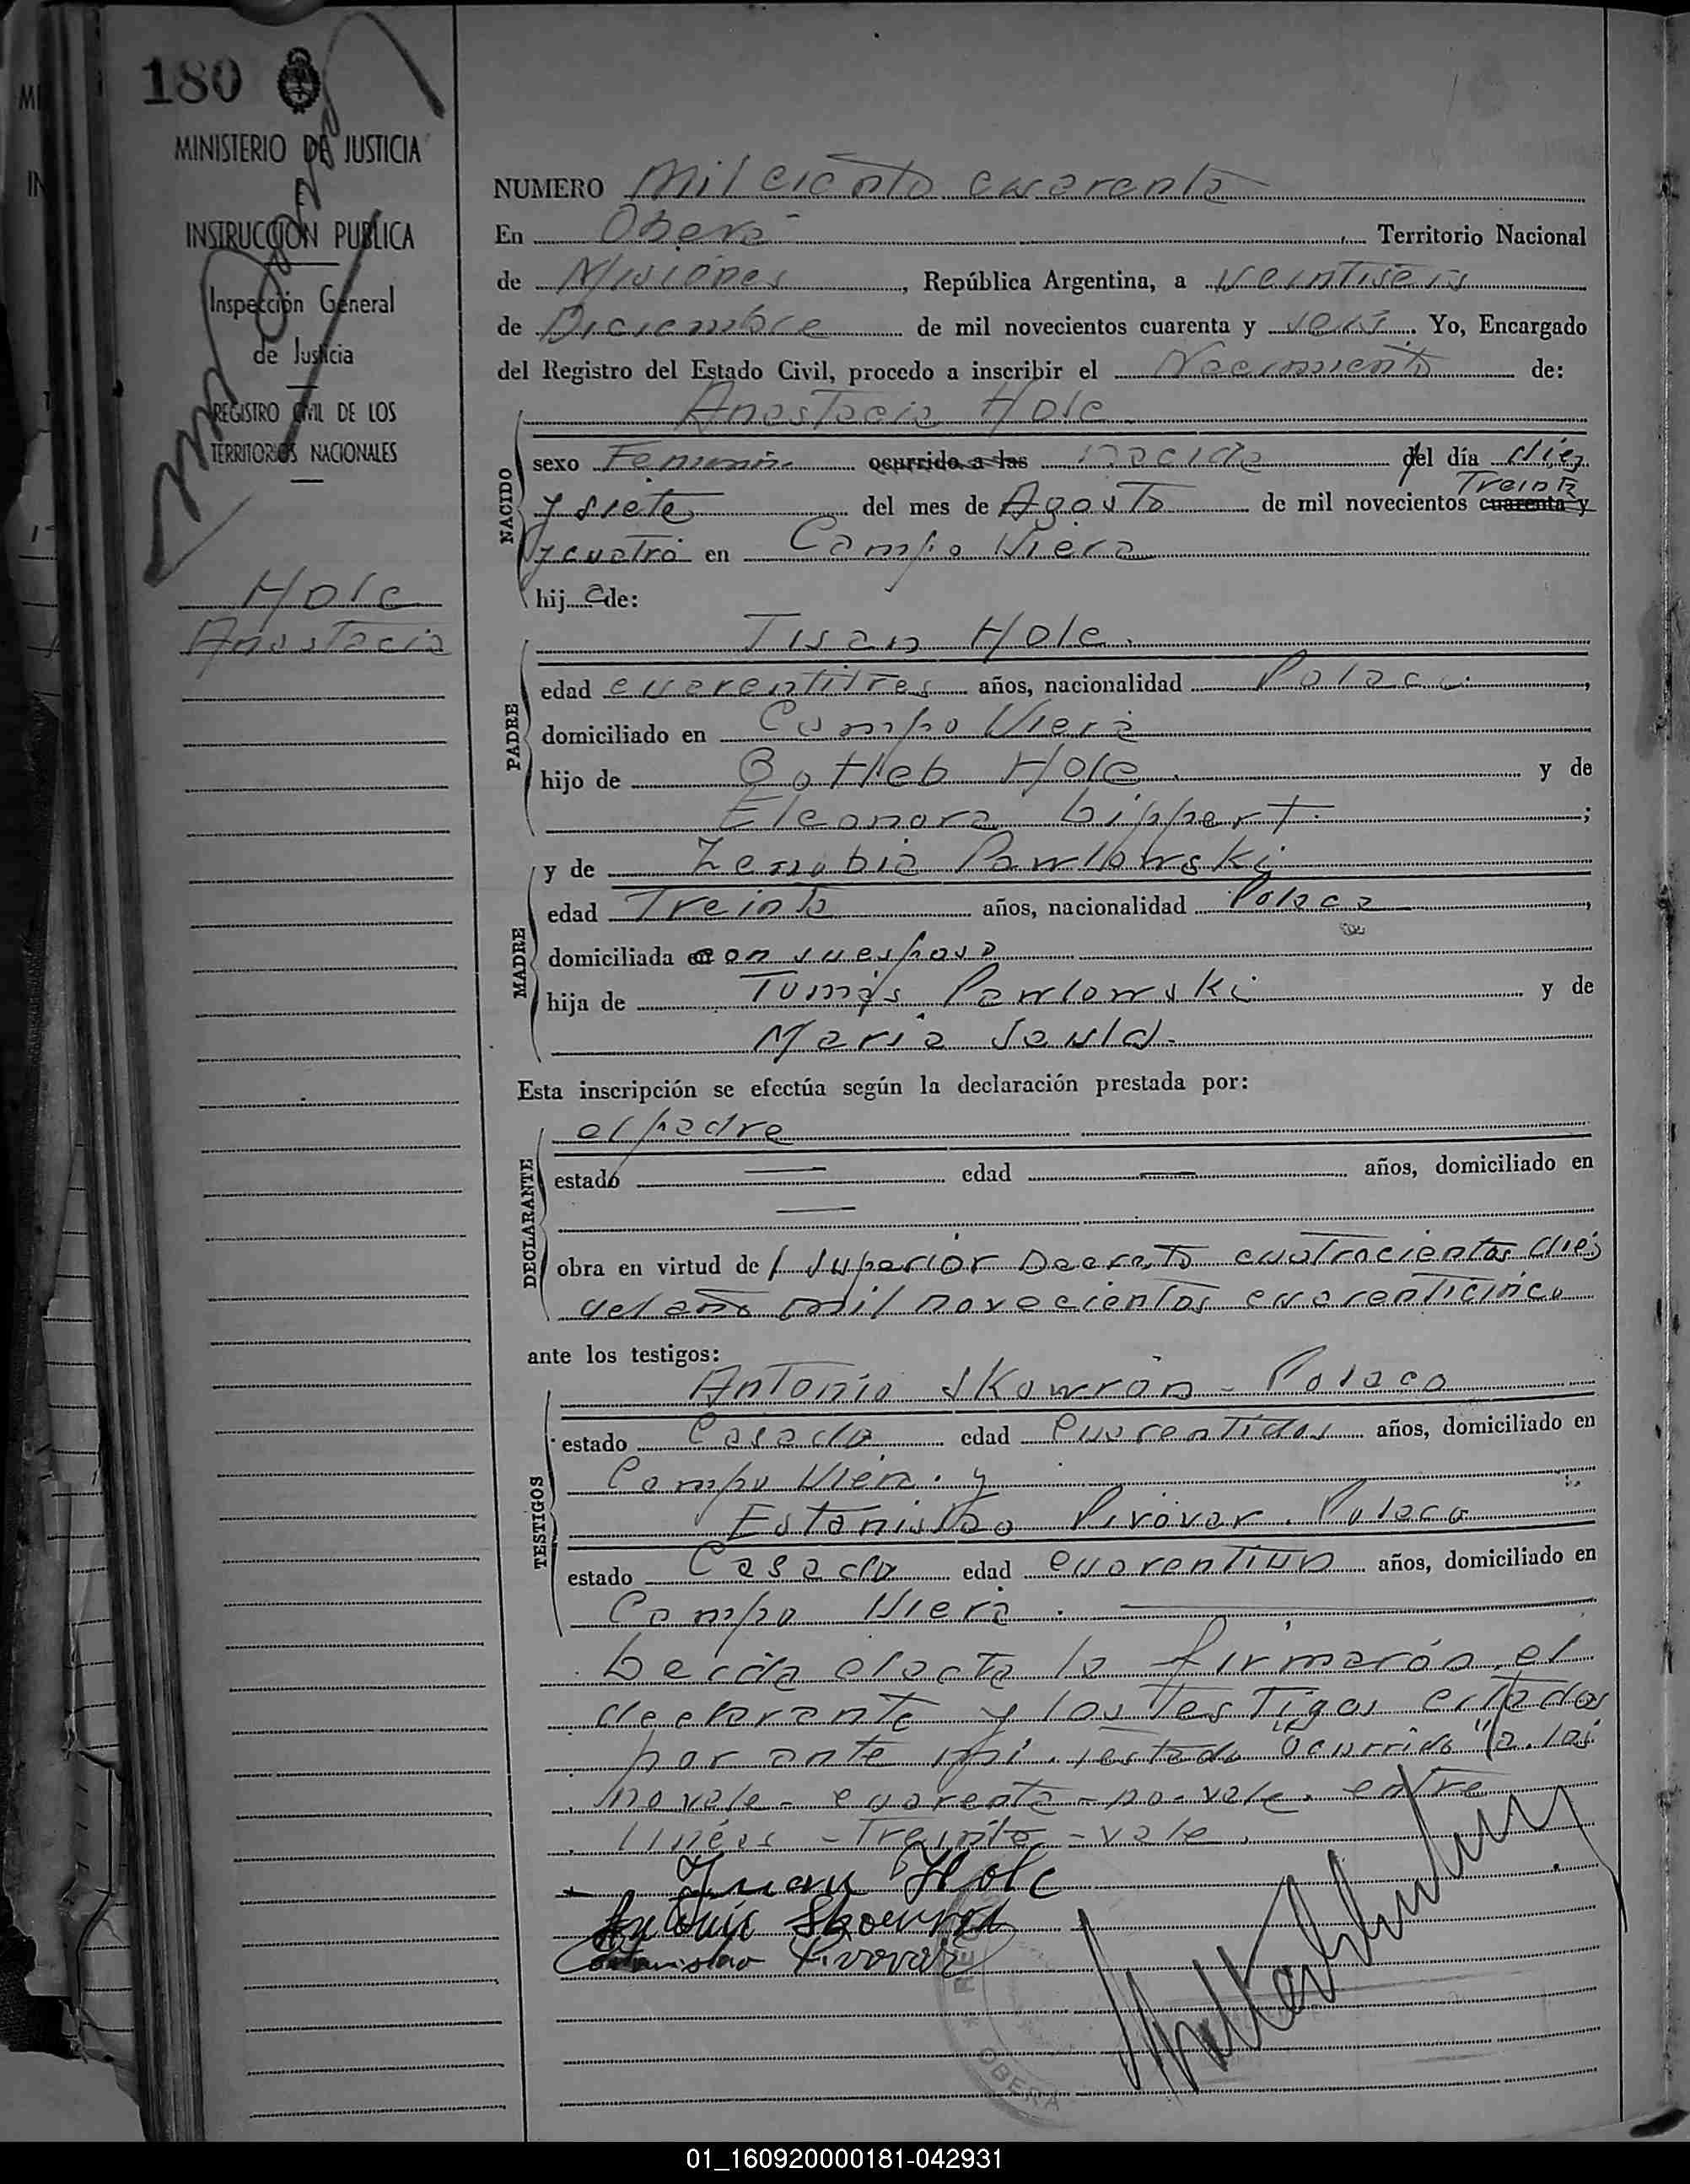 180
MINISTERIO DE JUSTICIA
E
INSTRUCCION PUBLICA
Inspección General
de Justicia
REGISTRO CIVIL DE LOS
TERRITORIOS NACIONALES
Hole
Anastacia
NUMERO Mil ciento cuarenta
En Oberá Territorio Nacional
de Misiones, República Argentina, a veintiseis
de Diciembre de mil novecientos cuarenta y seis. Yo, Encargado
del Registro del Estado Civil, procedo a inscribir el Nacimiento de:
Anastacia Hole
NACIDO
sexo Femenin. ocurrido a las nacida del día diez
y siete del mes de Agosto de mil novecientos cuarenta y Treinta
y cuatro en Campo Viera
hija de:
PADRE
Juan Hole.
edad cuarentitres años, nacionalidad Polaca.,
domiciliado en Campo Viera
hijo de Gotlieb Hole. y de
Eleonora Lippert.;
MADRE
y de Zenobia Pawlowski
edad Treinta años, nacionalidad Polaca,
domiciliada con su esposo
hija de Tomás Pawlowski y de
Maria
Esta inscripción se efectúa según la declaración prestada por:
DECLARANTE
el padre
estado — edad — años, domiciliado en
—
obra en virtud del Superior Decreto cuatrocientos diez
del año mil novecientos cuarenticinco
ante los testigos:
TESTIGOS
Antonio Skowron - Polaco
estado Casado edad Cuarentidos años, domiciliado en
Campo Viera. y
Estanislao Pivovar. Polaco
estado Casado edad cuarentiun años, domiciliado en
Campo Viera.
Leida el acta la firmarón el
declarante y los Testigos citados
por ante mi. testado "Ocurrido" "a las
no vale - cuarenta - no - vale. entre
lineas - Treinta - vale.
Juan Hole
Antonio Skowron
Estanislao Pivovar
OBERA
01_160920000181-042931